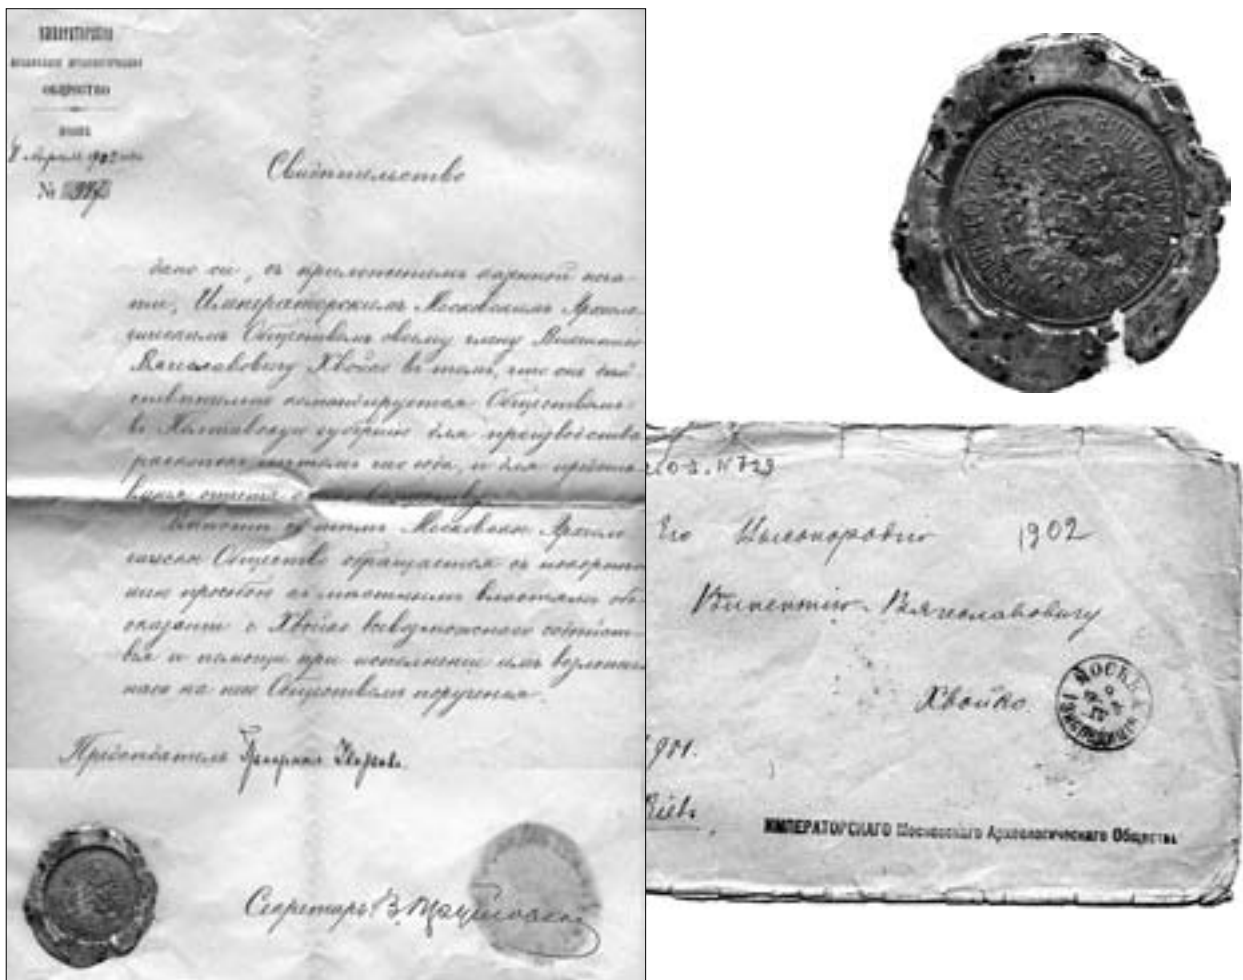 ИМПЕРАТОРСКОЕ
МОСКОВСКОЕ АРХЕОЛОГИЧЕСКОЕ
ОБЩЕСТВО
Апреля 1902
№ 997
Свидѣтельство
дано сіе, съ приложеніемъ казенной печа-
ти, Императорскимъ Московскимъ Археоло-
гическимъ Обществомъ своему члену Викентію
Вячеславовичу Хвойко въ томъ, что онъ дѣй-
ствительно командируется Обществомъ
въ Полтавскую губернію для производства
раскопокъ лѣтомъ сего года, и для
отчета Обществу.
Вмѣстѣ съ тѣмъ Московское Археоло
гическое Общество обращается съ покорнѣй
шею просьбою къ мѣстнымъ властямъ объ
оказаніи г. Хвойко всевозможнаго содѣйст-
вія и помощи при исполненіи имъ возложен
наго на него Обществомъ порученія.
Предсѣдатель Графиня Уварова
Секретарь В.
1902
Его Высокородію
Викентію Вячеславовичу
Хвойко.
МОСКВА
ИМПЕРАТОРСКАГО Московскаго Археологическаго Общества